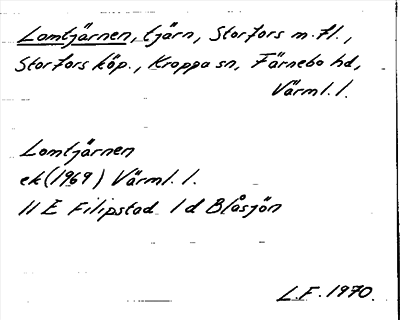 Lomtjärnen, tjärn, Storfors m.fl.,
Storfors köp., Kroppa sn, Färnebo hd,
Värml.l.
Lomtjärnen
ek(1969) Värml. l.
11 E Filipstad 1 d Blåsjön
L.F. 1970.